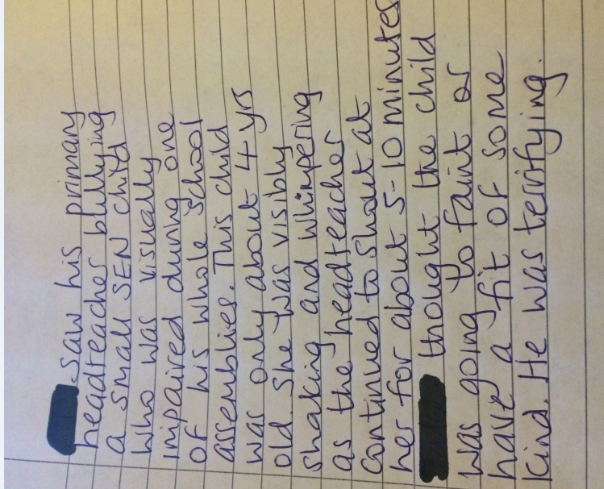 saw his primary
headteacher bullying
a small SEN child
who was visually
impaired during one
of his whole school
assemblies. This child
was only about 4 yrs
old. She was visibly
shaking and whimpering
as the headteacher
continued to shout at
her for about 5-10 minutes
thought the child
was going to faint or
have a fit of some
kind. He was terrifying.